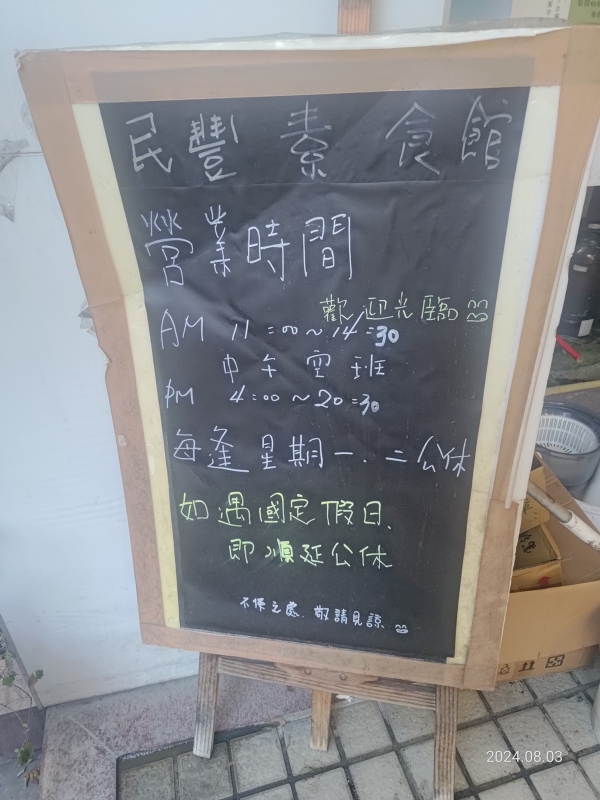 民豐素食館
營業時間
歡迎光臨
AM 11:00~14:30
中午空班
PM 4:00~20:30
每逢星期一.二公休
如遇國定假日.
即順延公休
不便之處.敬請見諒
2024.08.03